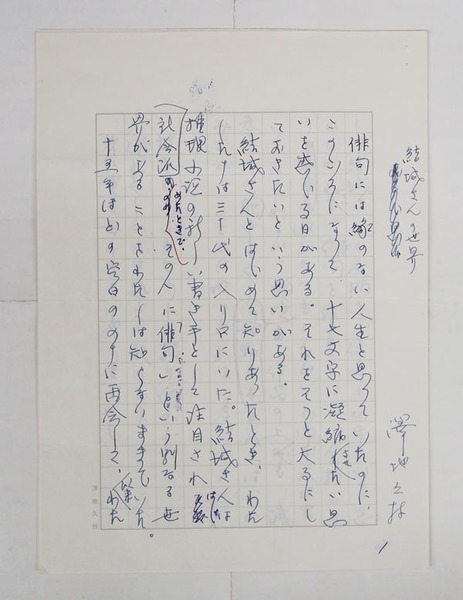 結城さんの世界
澤地久枝
俳句には縁のない人生と思っていたのに、
このごろになって、十七文字に凝縮させたい思
いを感じる日がある。それをそっと大切にし
ておきたいという思いがある。
結城さんとはじめて知りあったとき、わた
したちは三十代の入り口にいた。結城さんは
推理小説の新しい書き手として注目され
社会派の その人に俳句という別なる世
界があることをわたしは知らないままでいた。
十五年ほどの空白ののちに再会して、以来わた
1